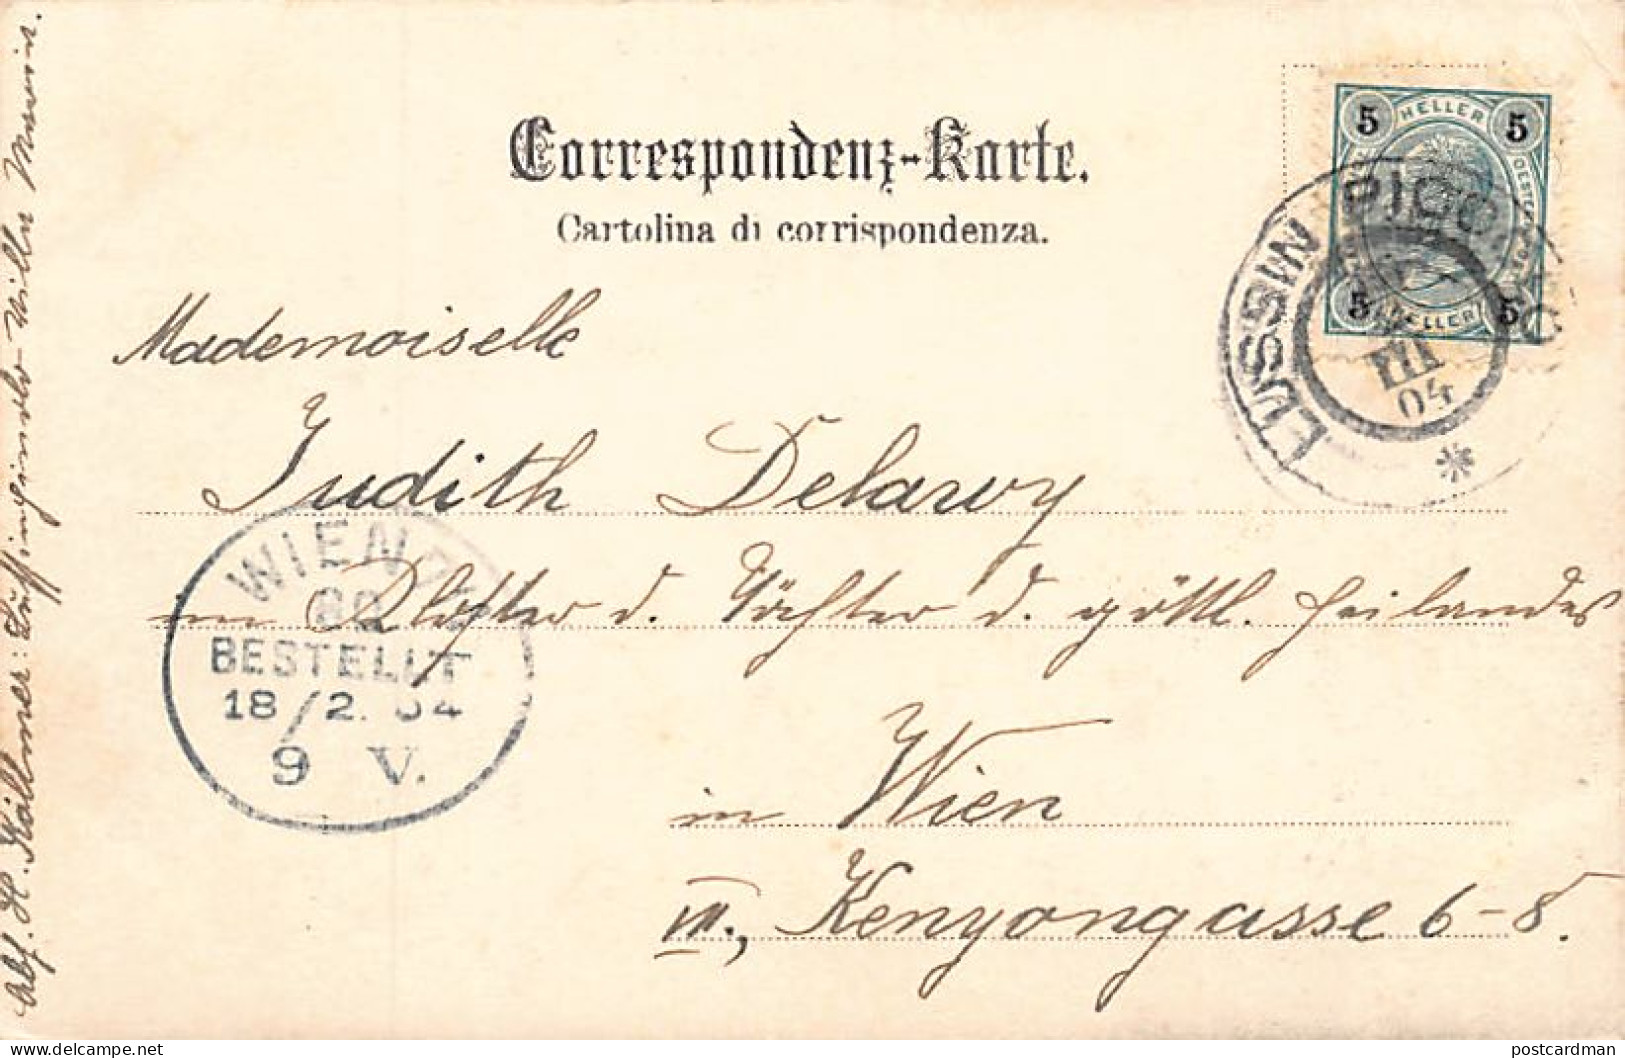 Correspondenz-Karte.
Cartolina di corrispondenza.
5 HELLER 5
5 HELLER 5
LUSSIN PICCOLO
III
04
Mademoiselle
Judith Delarvy
im Kloster d. Töchter d. göttl. Heilandes
in Wien
VII., Kenyongasse 6-8.
WIEN
BESTELLT
18/2. 04
9 V.
Abs. H. Köllmer: Lussinpiccolo Villa
delcampe.net
postcardman